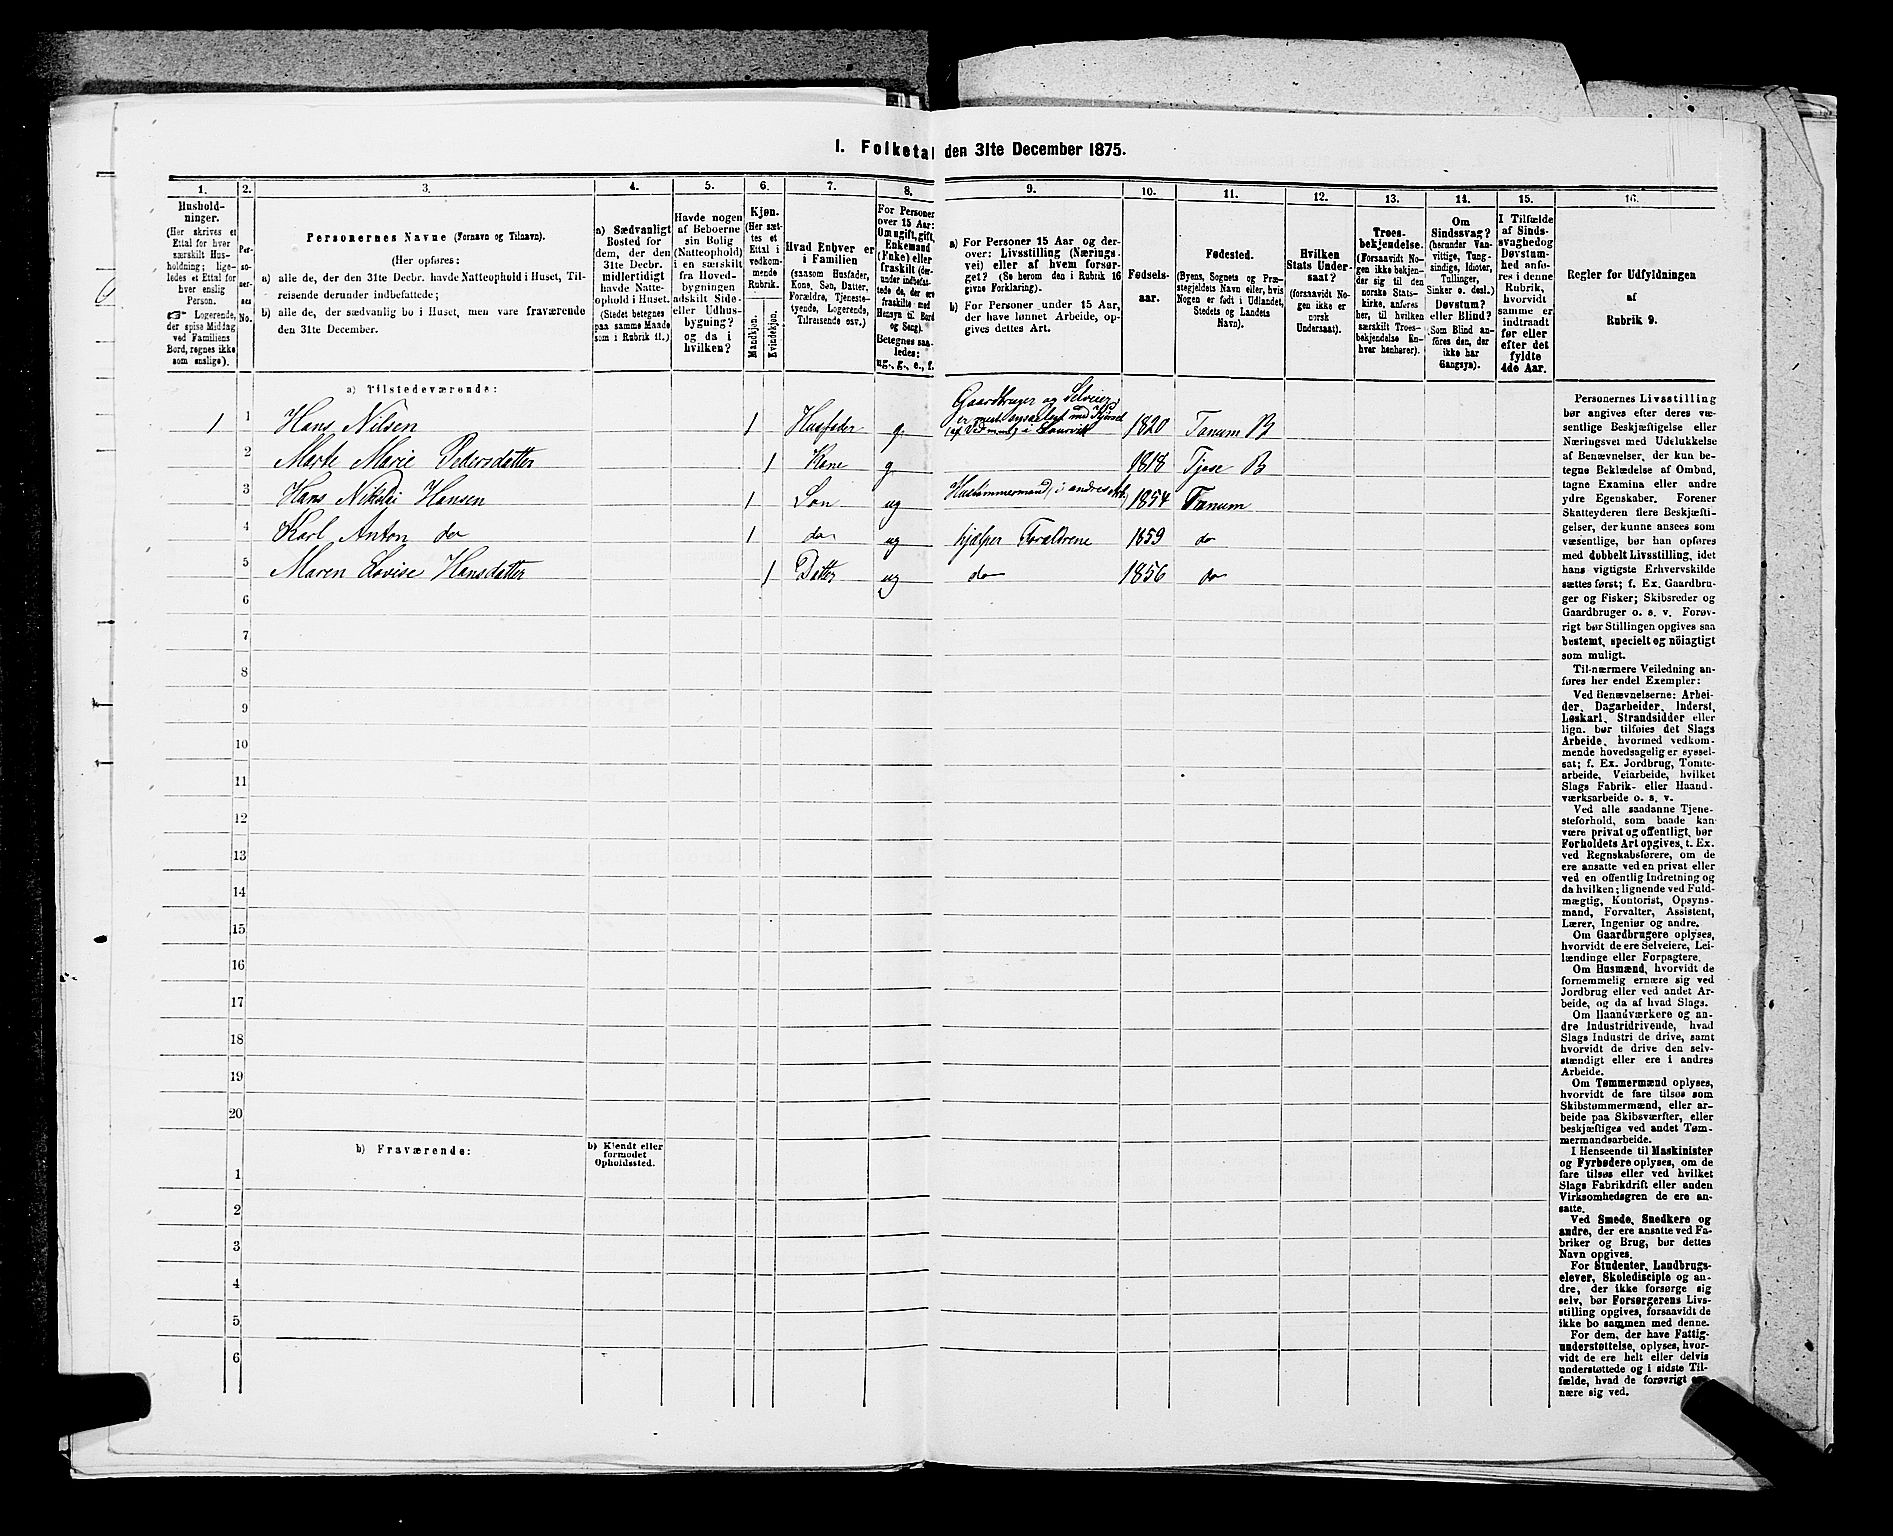 I. Folketal den 31te December 1875.
1. 2. 3. 4. 5. 6. 7. 8. 9. 10. 11. 12. 13. 14. 15. 16.
Hushold-
ninger.
(Her skrives et
Ettal for hver
særskilt Hus-
holdning; lige-
ledes et Ettal for
hver enslig
Person.
☞ Logerende,
der spise Middag
ved Familiens
Bord, regnes ikke
som enslige).
Per-
so-
ner-
nes
No.
Personernes Navne (Fornavn og Tilnavn).
(Her opføres:
a) alle de, der den 31te Decbr. havde Natteophold i Huset, Til-
reisende derunder indbefattede;
b) alle de, der sædvanlig bo i Huset, men vare fraværende
den 31te December.
a) Sædvanligt
Bosted for
dem, der den
31te Decbr.
midlertidigt
havde Natte-
ophold i Huset.
(Stedet betegnes
paa samme Maade
som i Rubrik 11.)
Havde nogen
af Beboerne
sin Bolig
(Natteophold)
i en særskilt
fra Hoved-
bygningen
adskilt Side-
eller Udhus-
bygning?
og da i
hvilken?
Kjøn.
(Her sæt-
tes et
Ettal i
vedkom-
mende
Rubrik.
Mandkjøn.
Kvindekjøn.
Hvad Enhver er
i Familien
(saasom Husfader,
Kone, Søn, Datter,
Forældre, Tjeneste-
tyende, Logerende,
Tilreisende osv.)
For Personer
over 15 Aar:
Om ugift, gift,
Enkemand
(Enke) eller
fraskilt (der-
under indbefat-
tede de, der ere
fraskilte med
Hensyn til Bord
og Seng).
Betegnes saa-
ledes:
ug., g., e., f.
a) For Personer 15 Aar og der-
over: Livsstilling (Nærings-
vei) eller af hvem forsør-
get? (Se herom den i Rubrik 16
givne Forklaring).
b) For Personer under 15 Aar,
der have lønnet Arbeide, op-
gives dettes Art.
Fødsels-
aar.
Fødested.
(Byens, Sognets og Præ-
stegjeldets Navn eller, hvis
Nogen er født i Udlandet,
Stedets og Landets
Navn).
Hvilken
Stats Under-
saat?
(forsaavidt No-
gen ikke er
norsk
Undersaat).
Troes-
bekjendelse.
(Forsaavidt No-
gen ikke bekjen-
der sig til den
norske Stats-
kirke, anføres
her, til hvilken
særskilt Troes-
bekjendelse En-
hver henhører).
Om
Sindssvag?
(herunder Van-
vittige, Tung-
sindige, Idioter,
Tullinger,
Sinker o. desl.)
Døvstum?
eller Blind?
(Som Blind an-
føres den, der
ikke har
Gangsyn).
I Tilfælde
af Sinds-
svaghed og
Døvstum-
hed anfø-
res i denne
Rubrik,
hvorvidt
samme er
indtraadt
før eller
efter det
fyldte
4de Aar.
Regler for Udfyldningen
af
Rubrik 9.
a) Tilstedeværende:
1 1 Hans Nilsen 1 Husfader g. Gaardbruger og Selveier 1820 Tanum B
2 Marte Marie Pedersdatter 1 Kone g 1818 Tjøse B
3 Hans Nikolai Hansen 1 Søn ug Hustømmermand, i andres Arb. 1854 Tanum
4 Karl Anton do 1 do ug hjælper Forældrene 1859 do
5 Maren Lovise Hansdatter 1 Datter ug do 1856 do
6
7
8
9
10
11
12
13
14
15
16
17
18
19
20
b) Fraværende:
b) Kjendt eller
formodet
Opholdssted.
1
2
3
4
5
6
Personernes Livsstilling
bør angives efter deres væ-
sentlige Beskjæftigelse eller
Næringsvei med Udelukkelse
af Benævnelser, der kun be-
tegne Beklædelse af Ombud,
tagne Examina eller andre
ydre Egenskaber. Forener
Skatteyderen flere Beskjæfti-
gelser, der kunne ansees som
væsentlige, bør han opføres
med dobbelt Livsstilling, idet
hans vigtigste Erhvervskilde
sættes først; f. Ex. Gaardbru-
ger og Fisker; Skibsreder og
Gaardbruger o. s. v. Forøv-
rigt bør Stillingen opgives saa
bestemt, specielt og nöiagtigt
som muligt.
Til nærmere Veiledning an-
føres her endel Exempler:
Ved Benævnelserne: Arbei-
der, Dagarbeider, Inderst,
Løskarl, Strandsidder eller
lign. bør tilføies det Slags
Arbeide, hvormed vedkom-
mende hovedsagelig er syssel-
sat; f. Ex. Jordbrug, Tomte-
arbeide, Veiarbeide, hvilket
Slags Fabrik- eller Haand-
værksarbeide o. s. v.
Ved alle saadanne Tjene-
steforhold, som baade kan
være privat og offentligt, bør
Forholdets Art opgives, t. Ex.
ved Regnskabsførere, om de
ere ansatte ved en privat eller
ved en offentlig Indretning og
da hvilken; lignende ved Fuld-
mægtig, Kontorist, Opsyns-
mand, Forvalter, Assistent,
Lærer, Ingeniør og andre.
Om Gaardbrugere oplyses,
hvorvidt de ere Selveiere, Lei-
lændinge eller Forpagtere.
Om Husmænd, hvorvidt de
fornemmelig ernære sig ved
Jordbrug eller ved andet Ar-
beide, og da af hvad Slags.
Om Haandværkere og an-
dre Industridrivende, hvad
Slags Industri de drive, samt
hvorvidt de drive den selv-
stændigt eller ere i andres
Arbeide.
Om Tømmermænd oplyses,
hvorvidt de fare tilsøs som
Skibstømmermænd, eller ar-
beide paa Skibsværfter, eller
beskjæftiges ved andet Tøm-
mermandsarbeide.
I Henseende til Maskinister
og Fyrbødere oplyses, om de
fare tilsøs eller ved hvilket
Slags Fabrikdrift eller anden
Virksomhedsgren de ere an-
satte.
Ved Smede, Snedkere og
andre, der ere ansatte ved Fa-
briker og Brug, bør dettes
Navn opgives.
For Studenter, Landbrugs-
elever, Skoledisciple og an-
dre, der ikke forsørge sig
selv, bør Forsørgerens Livs-
stilling opgives, forsaavidt de
ikke bo sammen med denne.
For dem, der have Fattig-
understøttelse, oplyses, hvor-
vidt de ere helt eller delvis
understøttede og i sidste Til-
fælde, hvad de forøvrigt er-
nære sig ved.